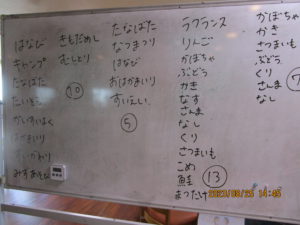 はなび
キャンプ
たなばた
かいすいよく
はかまいり
すいかわり
みずあそび
きもだめし
むしとり
10
たなばた
なつまつり
はなび
おはかまいり
すいえい
5
ラフランス
りんご
かぼちゃ
ぶどう
かき
なす
さんま
なし
くり
さつまいも
こめ
鮭
まつたけ
13
かぼちゃ
かき
さつまいも
ぶどう
くり
さんま
なし
7
2023/08/25 14:45